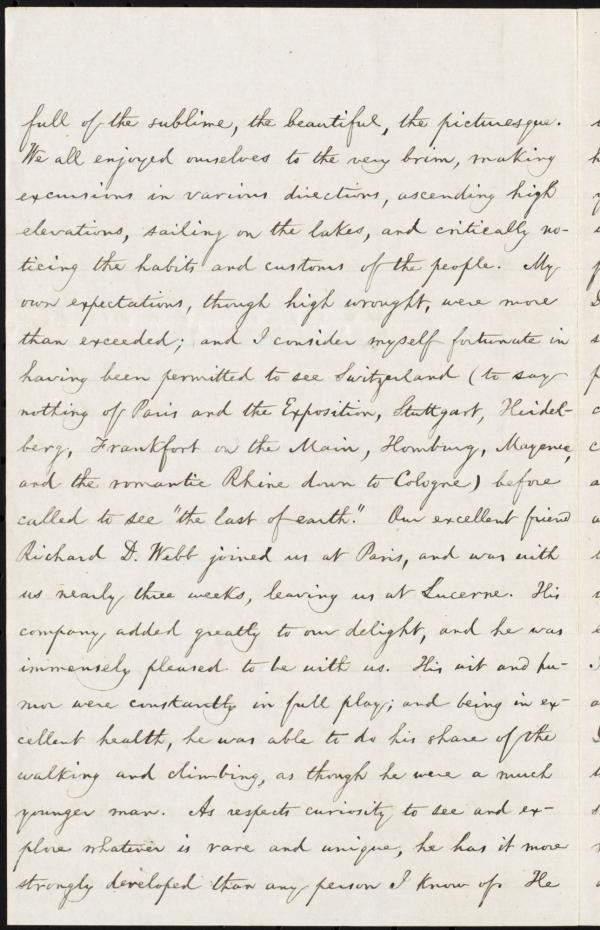 full of the sublime, the beautiful, the picturesque.
We all enjoyed ourselves to the very brim, making
excursions in various directions, ascending high
elevations, sailing on the lakes, and critically no-
ticing the habits and customs of the people. My
own expectations, though high wrought, were more
than exceeded; and I consider myself fortunate in
having been permitted to see Switzerland (to say
nothing of Paris and the Exposition, Stuttgart, Heidel-
berg, Frankfort on the Main, Homburg, Mayence,
and the romantic Rhine down to Cologne) before
called to see "the last of earth." Our excellent friend
Richard D. Webb joined us at Paris, and was with
us nearly three weeks, leaving us at Lucerne. His
company added greatly to our delight, and he was
immensely pleased to be with us. His wit and hu-
mor were constantly in full play; and being in ex-
cellent health, he was able to do his share of the
walking and climbing, as though he were a much
younger man. As respects curiosity to see and ex-
plore whatever is rare and unique, he has it more
strongly developed than any person I know of. He